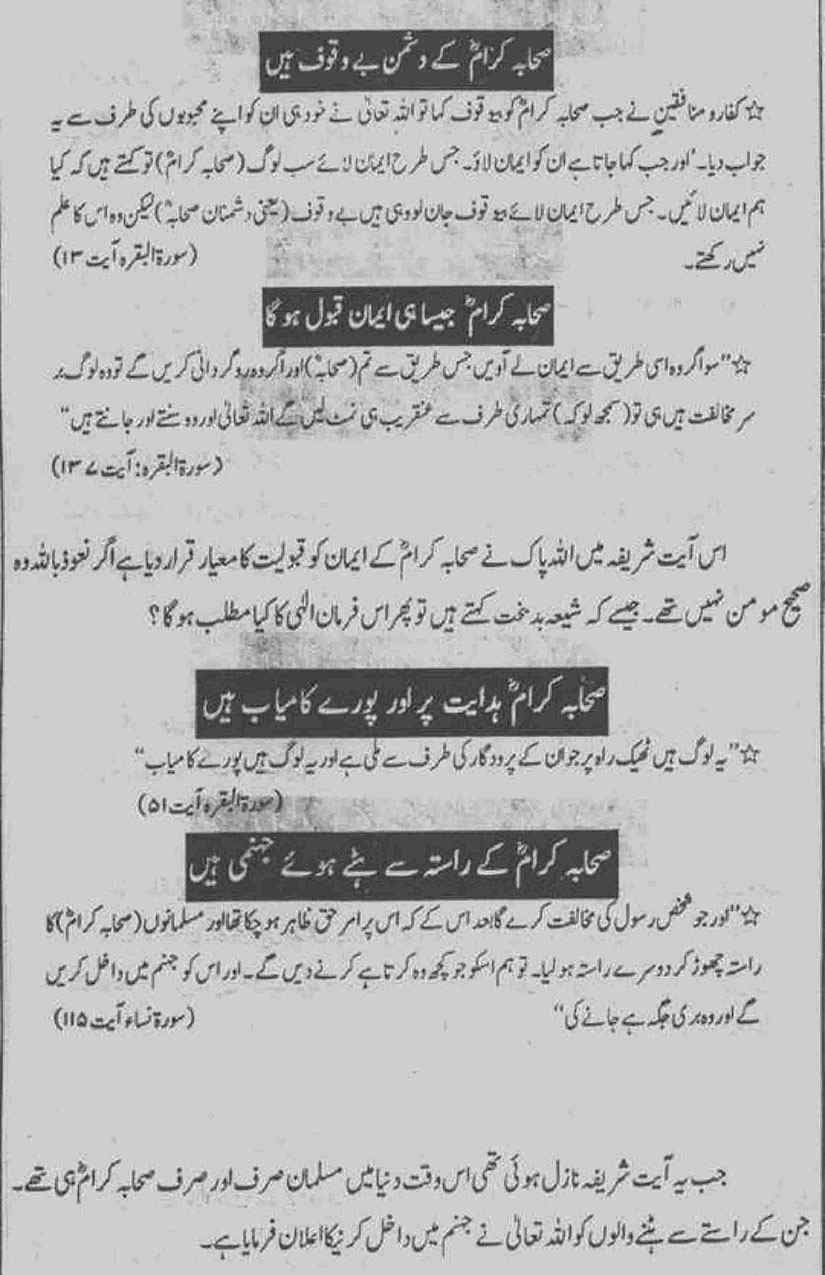 صحابہ کرامؓ کے دشمن بے وقوف ہیں
☆ کفار و منافقین نے جب صحابہ کرامؓ کو بیوقوف کہا تو اللہ تعالیٰ نے خود ہی ان کو اپنے محبوبوں کی طرف سے یہ
جواب دیا۔ "اور جب کہا جاتا ہے ان کو ایمان لاؤ۔ جس طرح ایمان لائے سب لوگ (صحابہ کرامؓ) تو کہتے ہیں کہ کیا
ہم ایمان لائیں۔ جس طرح ایمان لائے بیوقوف جان لو وہی ہیں بے وقوف (یعنی دشمنان صحابہؓ) لیکن وہ اس کا علم
نہیں رکھتے۔ (سورۃ البقرہ آیت ۱۳)
صحابہ کرامؓ جیسا ہی ایمان قبول ہوگا
☆ "سو اگر وہ اسی طریق سے ایمان لے آویں جس طریق سے تم (صحابہؓ) اور اگر وہ روگردانی کریں گے تو وہ لوگ بر
سر مخالفت ہیں ہی تو (سمجھ لو کہ) تمہاری طرف سے عنقریب ہی نمٹ لیں گے اللہ تعالیٰ اور وہ سنتے اور جانتے ہیں"
(سورۃ البقرہ: آیت ۱۳۷)
اس آیت شریفہ میں اللہ پاک نے صحابہ کرامؓ کے ایمان کو قبولیت کا معیار قرار دیا ہے اگر نعوذ باللہ وہ
صحیح مومن نہیں تھے۔ جیسے کہ شیعہ بدبخت کہتے ہیں تو پھر اس فرمان الٰہی کا کیا مطلب ہوگا؟
صحابہ کرامؓ ہدایت پر اور پورے کامیاب ہیں
☆ "یہ لوگ ہیں ٹھیک راہ پر جو ان کے پرودگار کی طرف سے ملی ہے اور یہ لوگ ہیں پورے کامیاب"
(سورۃ البقرہ آیت ۵۱)
صحابہ کرامؓ کے راستہ سے ہٹے ہوئے جہنمی ہیں
☆ "اور جو شخص رسول کی مخالفت کرے گا بعد اس کے کہ اس پر امر حق ظاہر ہو چکا تھا اور مسلمانوں (صحابہ کرامؓ) کا
راستہ چھوڑ کر دوسرے راستہ ہو لیا۔ تو ہم اسکو جو کچھ وہ کرتا ہے کرنے دیں گے۔ اور اس کو جہنم میں داخل کریں
گے اور وہ بری جگہ ہے جانے کی" (سورۃ نساء آیت ۱۱۵)
جب یہ آیت شریفہ نازل ہوئی تھی اس وقت دنیا میں مسلمان صرف اور صرف صحابہ کرامؓ ہی تھے۔
جن کے راستے سے ہٹنے والوں کو اللہ تعالیٰ نے جہنم میں داخل کرنیکا اعلان فرمایا ہے۔